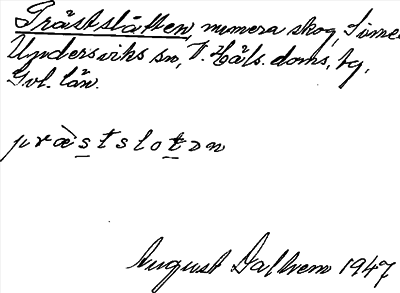 Prästslåtten, numera skog, Simea
Undersviks sn, V. Häls. doms. hg,
Gvl. län.
præ̀stslotən
August Dalhem 1947